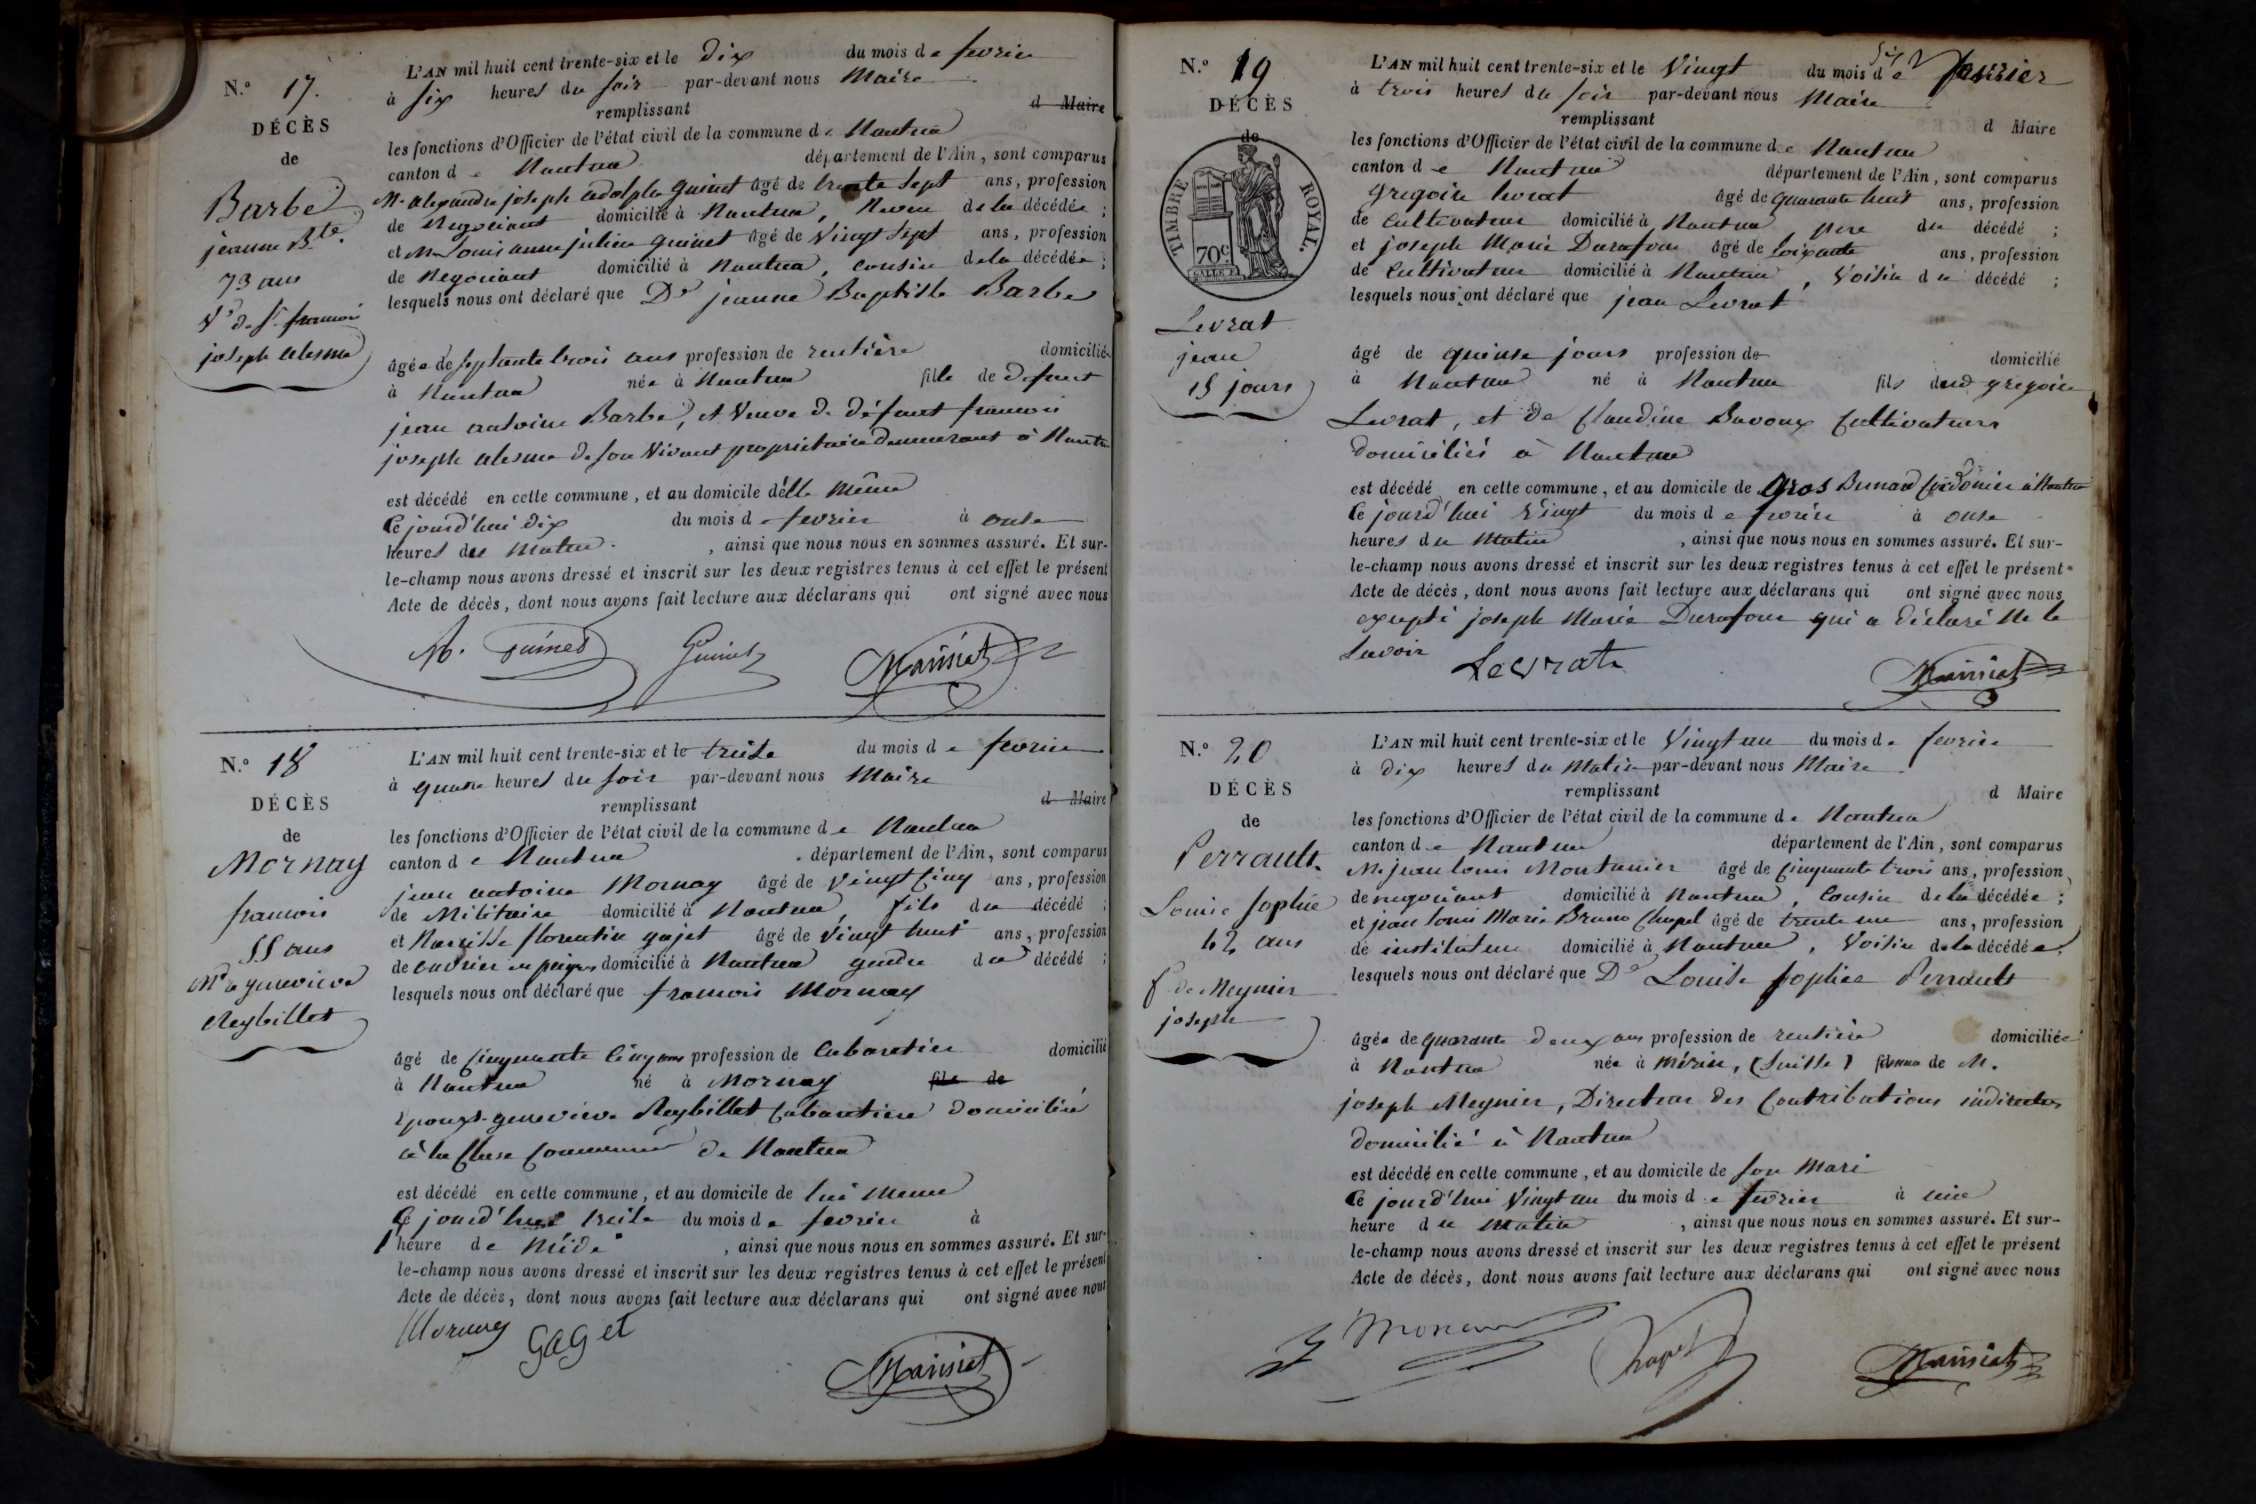 N.º 17.
DÉCÈS
de
Barbe
jeanne Bte.
73 ans
Ve de St françois
joseph alesme
L'AN mil huit cent trente-six et le dix du mois de fevrier
à six heures du soir par-devant nous Maire
remplissant d Maire
les fonctions d'Officier de l'état civil de la commune de Nantua
canton de Nantua département de l'Ain, sont comparus
M. alexandre joseph adolphe guinet âgé de trente sept ans, profession
de Negociant domicilié à Nantua, Neveu de la décédée;
et M. Louis anne julien guinet âgé de Vingt sept ans, profession
de Negociant domicilié à Nantua, Cousin de la décédée;
lesquels nous ont déclaré que De jeanne Baptiste Barbe
âgée de septante trois ans profession de rentière domiciliée
à Nantua née à Nantua fille de defunt
jean antoine Barbe, et Veuve de défunt françois
joseph alesme de son Vivant propriétaire demeurant à Nantua
est décédé en cette commune, et au domicile d'elle Même
Ce jourd'hui dix du mois de fevrier à onse
heures du Matin, ainsi que nous nous en sommes assuré. Et sur-
le-champ nous avons dressé et inscrit sur les deux registres tenus à cet effet le présent
Acte de décès, dont nous avons fait lecture aux déclarans qui ont signé avec nous
A. Guinet Guinet Mainiat
N.º 18
DÉCÈS
de
Mornay
francois
55 ans
Md a genevieve
Reybillet
L'AN mil huit cent trente-six et le treise du mois de fevrier
à quatre heures du soir par-devant nous Maire
remplissant d Maire
les fonctions d'Officier de l'état civil de la commune de Nantua
canton de Nantua département de l'Ain, sont comparus
jean antoine Mornay âgé de Vingt Cinq ans, profession
de Militaire domicilié à Nantua, fils du décédé;
et Narcisse florentin gajet âgé de Vingt huit ans, profession
de ouvrier en peignes domicilié à Nantua gendre du décédé;
lesquels nous ont déclaré que francois Mornay
âgé de Cinquante Cinq ans profession de Cabaretier domicilié
à Nantua né à Mornay fils de
Epoux genevieve Reybillet Cabaretiere domiciliée
à la Cluse Commune de Nantua
est décédé en cette commune, et au domicile de lui Meme
Ce jourd'hui treise du mois de fevrier à
heure de Midi, ainsi que nous nous en sommes assuré. Et sur-
le-champ nous avons dressé et inscrit sur les deux registres tenus à cet effet le présent
Acte de décès, dont nous avons fait lecture aux déclarans qui ont signé avec nous
Mornay GAGet Mainiat
N.º 19
DÉCÈS
de
TIMBRE ROYAL.
70c
Levrat
jean
15 jours
L'AN mil huit cent trente-six et le Vingt du mois de fevrier
à trois heures du soir par-devant nous Maire
remplissant d Maire
les fonctions d'Officier de l'état civil de la commune de Nantua
canton de Nantua département de l'Ain, sont comparus
Gregoire Levrat âgé de quarante huit ans, profession
de Cultivateur domicilié à Nantua, pere du décédé;
et joseph Marie Durafour âgé de Soixante ans, profession
de Cultivateur domicilié à Nantua, Voisin du décédé;
lesquels nous ont déclaré que jean Levrat
âgé de quinse jours profession de domicilié
à Nantua né à Nantua fils dud gregoire
Levrat, et de Claudine Bavoux Cultivateurs
domiciliés à Nantua
est décédé en cette commune, et au domicile de Gros Bernard Cordonier à Nantua
Ce jourd'hui Vingt du mois de fevrier à onse
heures du Matin, ainsi que nous nous en sommes assuré. Et sur-
le-champ nous avons dressé et inscrit sur les deux registres tenus à cet effet le présent
Acte de décès, dont nous avons fait lecture aux déclarans qui ont signé avec nous
excepté joseph Marie Durafour qui a déclaré Ne le
Savoir Levrat Mainiat
N.º 20
DÉCÈS
de
Perrault
Louise Sophie
42 ans
fe de Meynier
joseph
L'AN mil huit cent trente-six et le Vingt un du mois de fevrier
à dix heures du Matin par-devant nous Maire
remplissant d Maire
les fonctions d'Officier de l'état civil de la commune de Nantua
canton de Nantua département de l'Ain, sont comparus
M. jean Louis Montanier âgé de Cinquante trois ans, profession
de negociant domicilié à Nantua, Cousin de la décédée;
et jean Louis Marie Bruno Chapel âgé de trente un ans, profession
de instituteur domicilié à Nantua, Voisin de la décédée.
lesquels nous ont déclaré que De Louise Sophie Perrault
âgée de quarante deux ans profession de rentière domiciliée
à Nantua née à (Suisse) femme de M.
joseph Meynier, Directeur des Contributions indirectes
domicilié à Nantua
est décédé en cette commune, et au domicile de Son Mari
Ce jourd'hui Vingt un du mois de fevrier à une
heure du Matin, ainsi que nous nous en sommes assuré. Et sur-
le-champ nous avons dressé et inscrit sur les deux registres tenus à cet effet le présent
Acte de décès, dont nous avons fait lecture aux déclarans qui ont signé avec nous
Chapel Mainiat